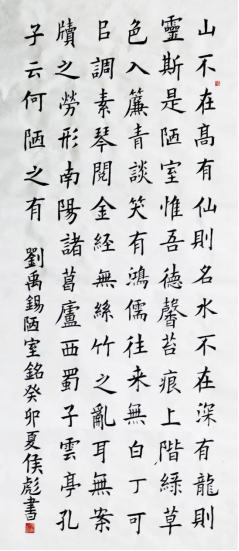 山不在髙有仙則名水不在深有龍則
靈斯是陋室惟吾德馨苔痕上階綠草
色入簾青談笑有鴻儒往来無白丁可
㠯調素琴閱金經無絲竹之亂耳無案
牘之勞形南陽諸葛廬西蜀子雲亭孔
子云何陋之有 劉禹錫陋室銘癸卯夏侯彪書